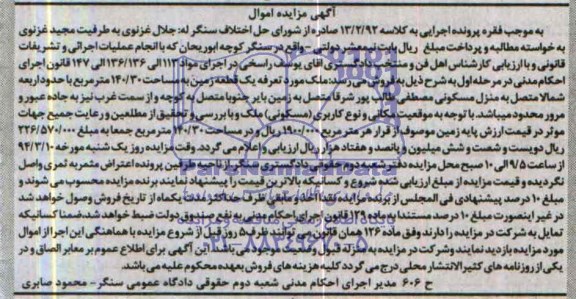 آگهی مزایده اموال
به موجب فقره پرونده اجرایی به کلاسه ۱۳/۲/۹۲ صادره از شورای حل اختلاف سنگر له: جلال غزنوی به طرفیت مجید غزنوی
به خواسته مطالبه و پرداخت مبلغ ریال بابت نیمعشر دولتی - واقع در سنگر کوچه ابوریحان که با انجام عملیات اجرائی و تشریفات
قانونی و با ارزیابی کارشناس اهل فن و منتخب دادگستری آقای یوسف راسخی در اجرای مواد ۱۱۲ الی ۱۳۶/۱۳۶ الی ۱۴۷ قانون اجرای
احکام مدنی در مرحله اول به شرح ذیل به فروش می رسد: ملک مورد تعرفه یک قطعه زمین به مساحت ۱۴۰/۳۰ مترمربع با حدود اربعه
شمالا متصل به منزل مسکونی مصطفی طالب پور شرقا متصل به زمین بایر جنوبا متصل به کوچه و از سمت غرب نیز به جاده عبور و
مرور محدود میباشد. با توجه به موقعیت مکانی و نوع کاربری (مسکونی) ملک و با بررسی و تحقیق از مطلعین و رعایت جمیع جهات
موثر در قیمت ارزش پایه زمین موصوف از قرار هر مترمربع ۱۹۰۰/۰۰۰ ریال و در مساحت ۱۴۰/۳۰ مترمربع جمعا به مبلغ ۲۲۶/۵۷۰/۰۰۰
ریال دویست و شصت و شش میلیون و پانصد و هفتاد هزار ریال ارزیابی و اعلام می گردد. وقت مزایده روز یک شنبه مورخه ۹۴/۳/۱۰
از ساعت ۹/۵ الی ۱۰ صبح محل مزایده دفتر شعبه دوم حقوقی دادگستری سنگر از ناحیه طرفین پرونده اعتراض مثمربه ثمری واصل
نگردیده و قیمت مزایده از مبلغ ارزیابی شده شروع و کسانیکه بالاترین قیمت را پیشنهاد نمایند برنده مزایده محسوب می شوند و
مبلغ ۱۰ درصد پیشنهادی فی المجلس از برنده مزایده نقدا اخذ مابقی ظرف حداکثر مدت یکماه از تاریخ فروش وصول خواهد شد
در غیر اینصورت مبلغ ۱۰ درصد مستندا به ماده ۱۲۹ قانون اجرای احکام مدنی به نفع صندوق دولت ضبط خواهد شد. ضمنا کسانیکه
تمایل به شرکت در مزایده را دارند وفق ماده ۱۲۶ همان قانون می توانند ظرف ۵ روز قبل از شروع مزایده با هماهنگی این اجرا از اموال
مورد مزایده بازدید نمایند و شرکت در مزایده به منزله قبول وضعیت موجود می باشد. این آگهی برای اطلاع عموم بر معابر الصاق و در
یکی از روزنامه های کثیرالانتشار محلی درج می گردد کلیه هزینه های فروش بعهده محکوم علیه می باشد.
ح ۶۰۶ مدیر اجرای احکام مدنی شعبه دوم حقوقی دادگاه عمومی سنگر - محمود صابری